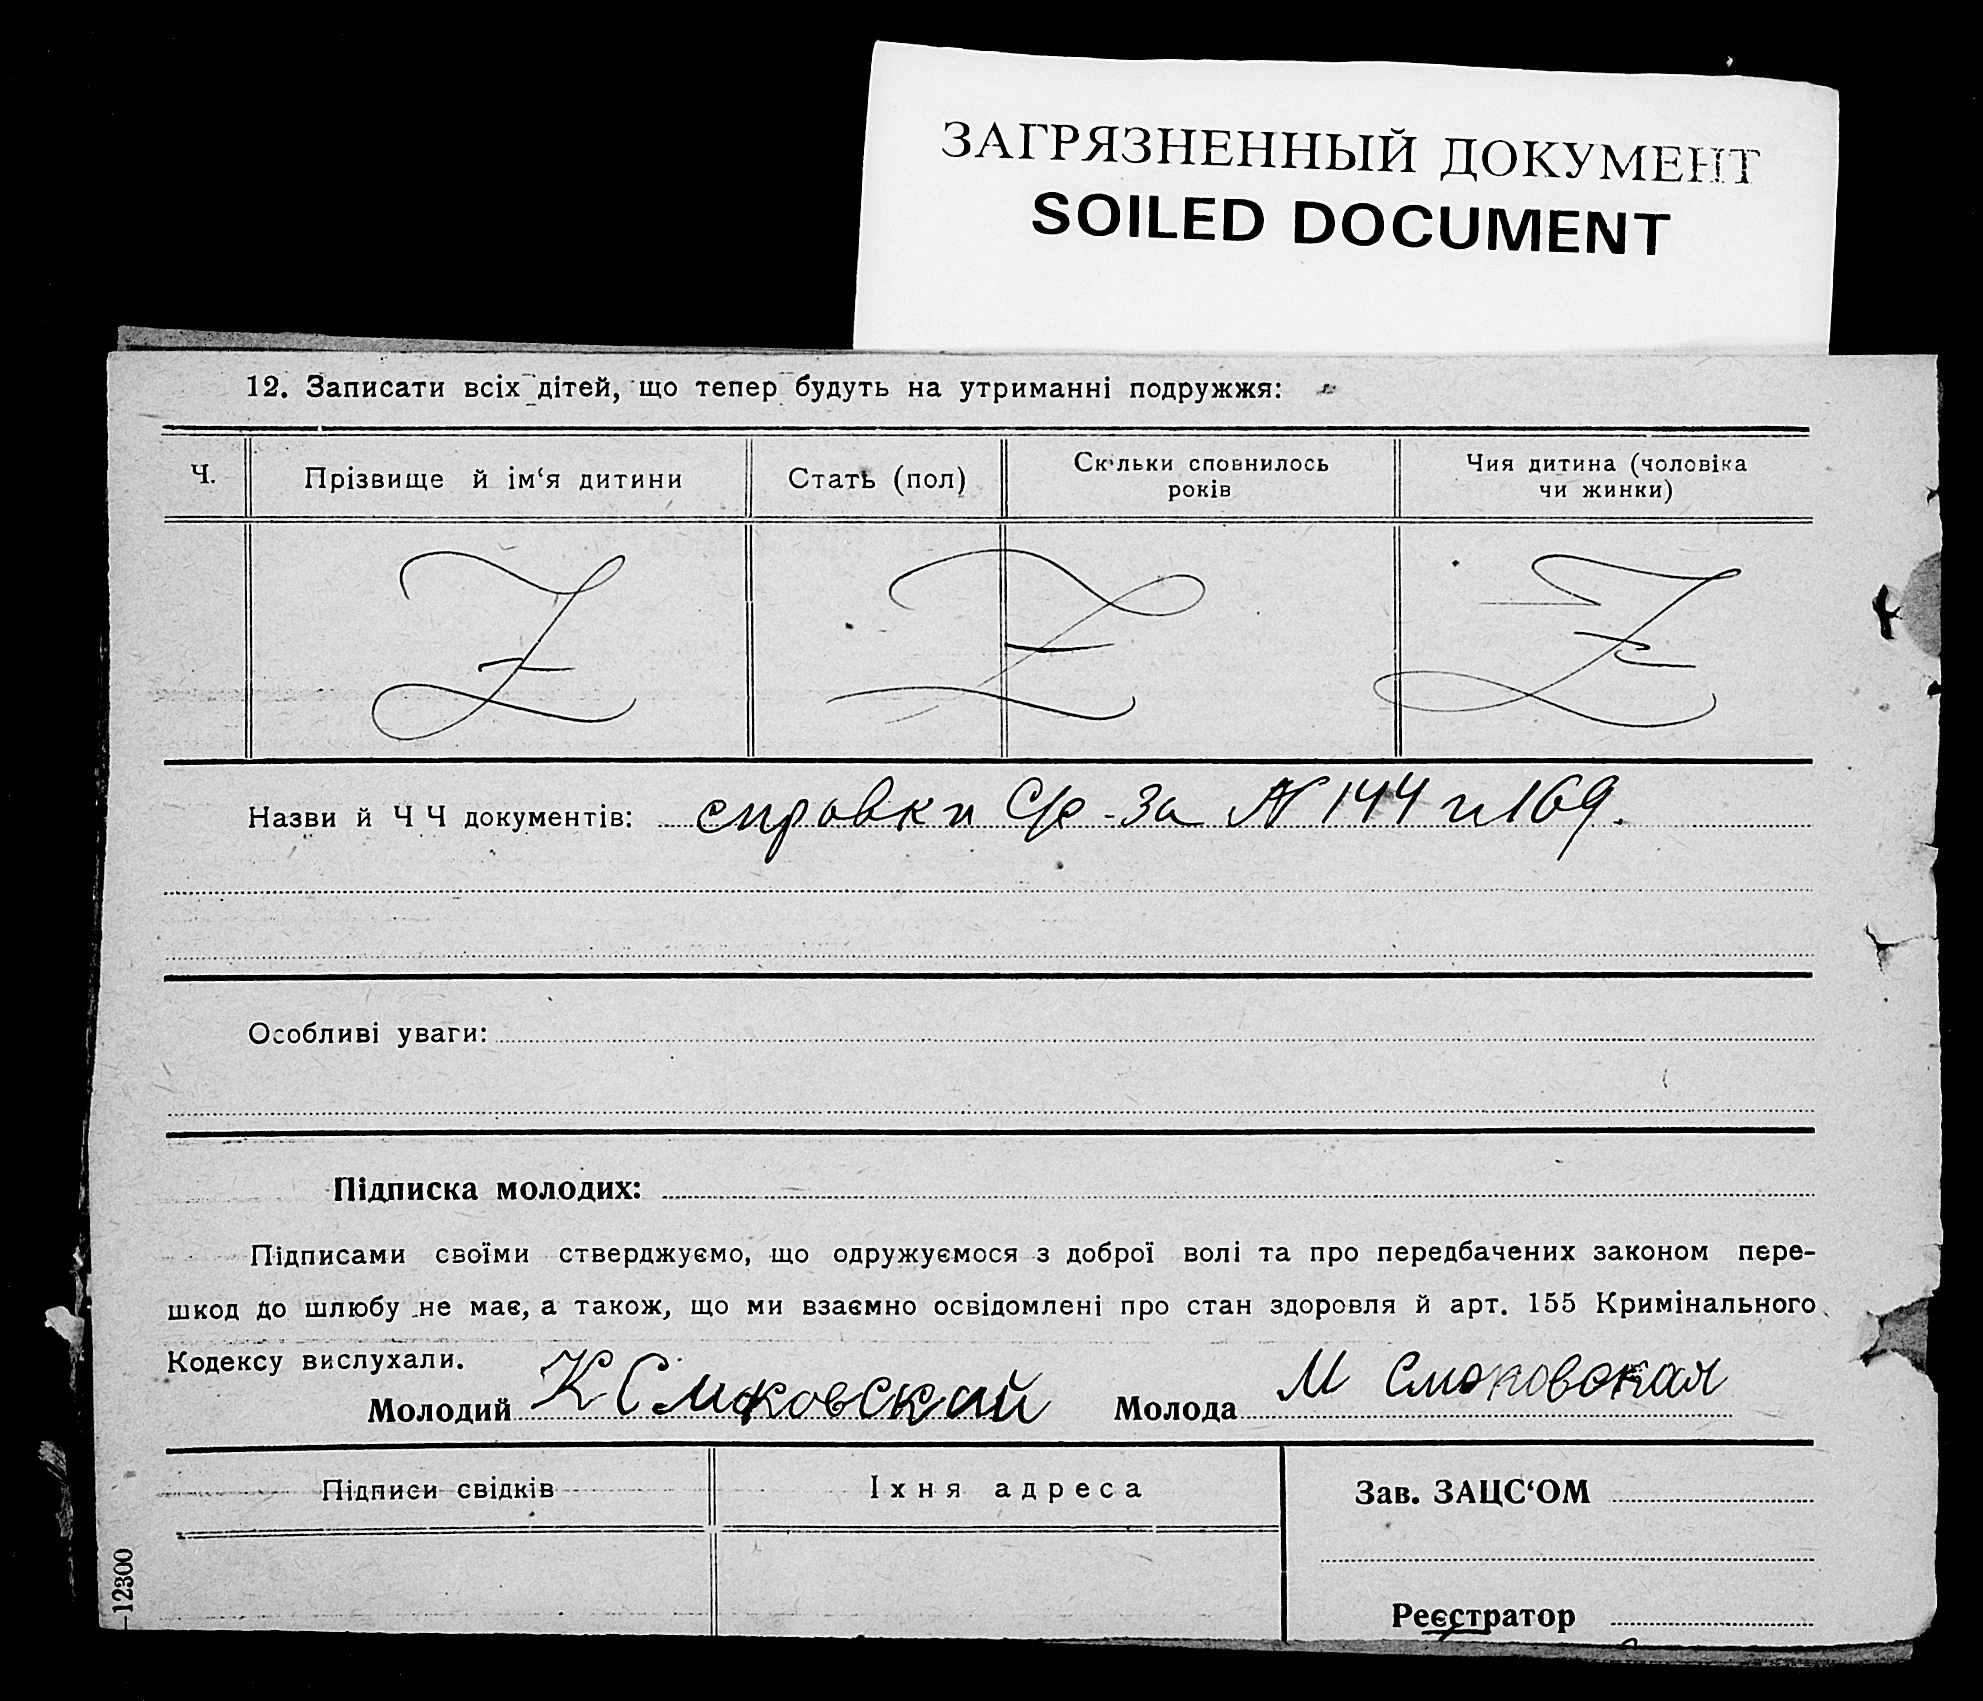 ЗАГРЯЗНЕННЫЙ ДОКУМЕНТ
SOILED DOCUMENT
12. Записати всіх дітей, що тепер будуть на утриманні подружжя:
Ч. Прізвище й ім‘я дитини Стать (пол) Скільки сповнилось років Чия дитина (чоловіка чи жинки)
Z Z Z
Назви й Ч Ч документів: справки С/с - за № 144 и 169.
Особливі уваги:
Підписка молодих:
Підписами своїми стверджуємо, що одружуємося з доброї волі та про передбачених законом пере-
шкод до шлюбу не має, а також, що ми взаємно освідомлені про стан здоровля й арт. 155 Кримінального
Кодексу вислухали.
Молодий К Смоковский Молода М Смоковская
Підписи свідків Іхня адреса Зав. ЗАЦС‘ОМ
Реєстратор
—12300